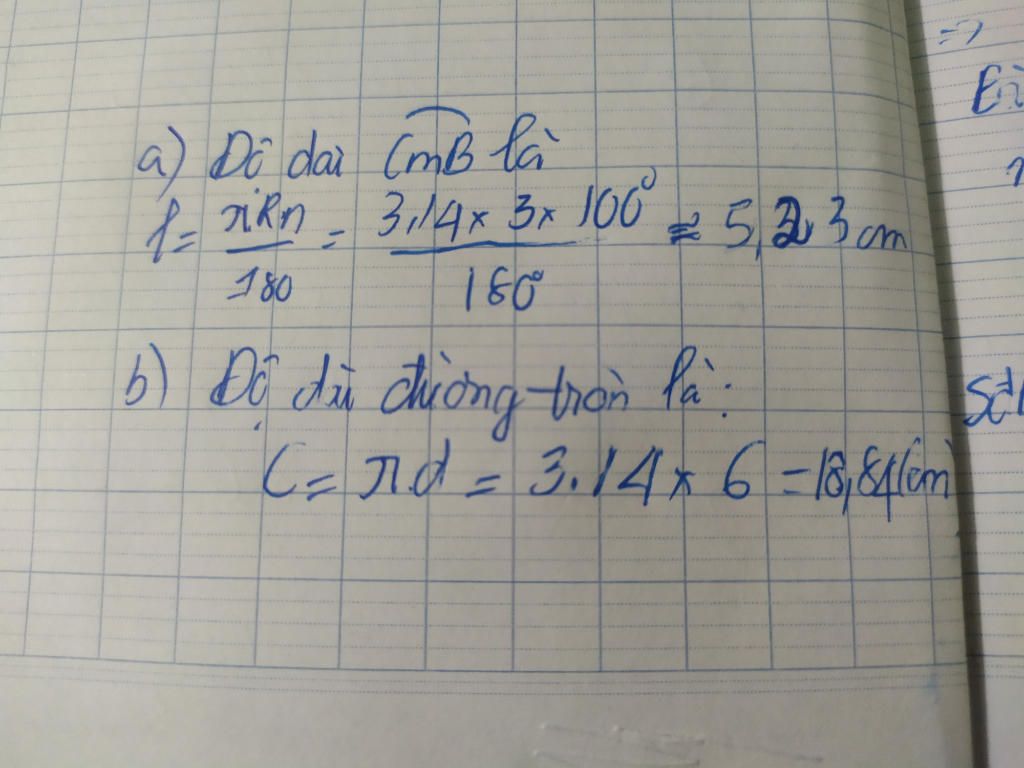 a) Độ dài CmB là
l = πRn/180 = 3,14 × 3 × 100°/180° ≈ 5,23 cm
b) Độ dài đường tròn là:
C = πd = 3.14 × 6 = 18,84 (cm)
=>